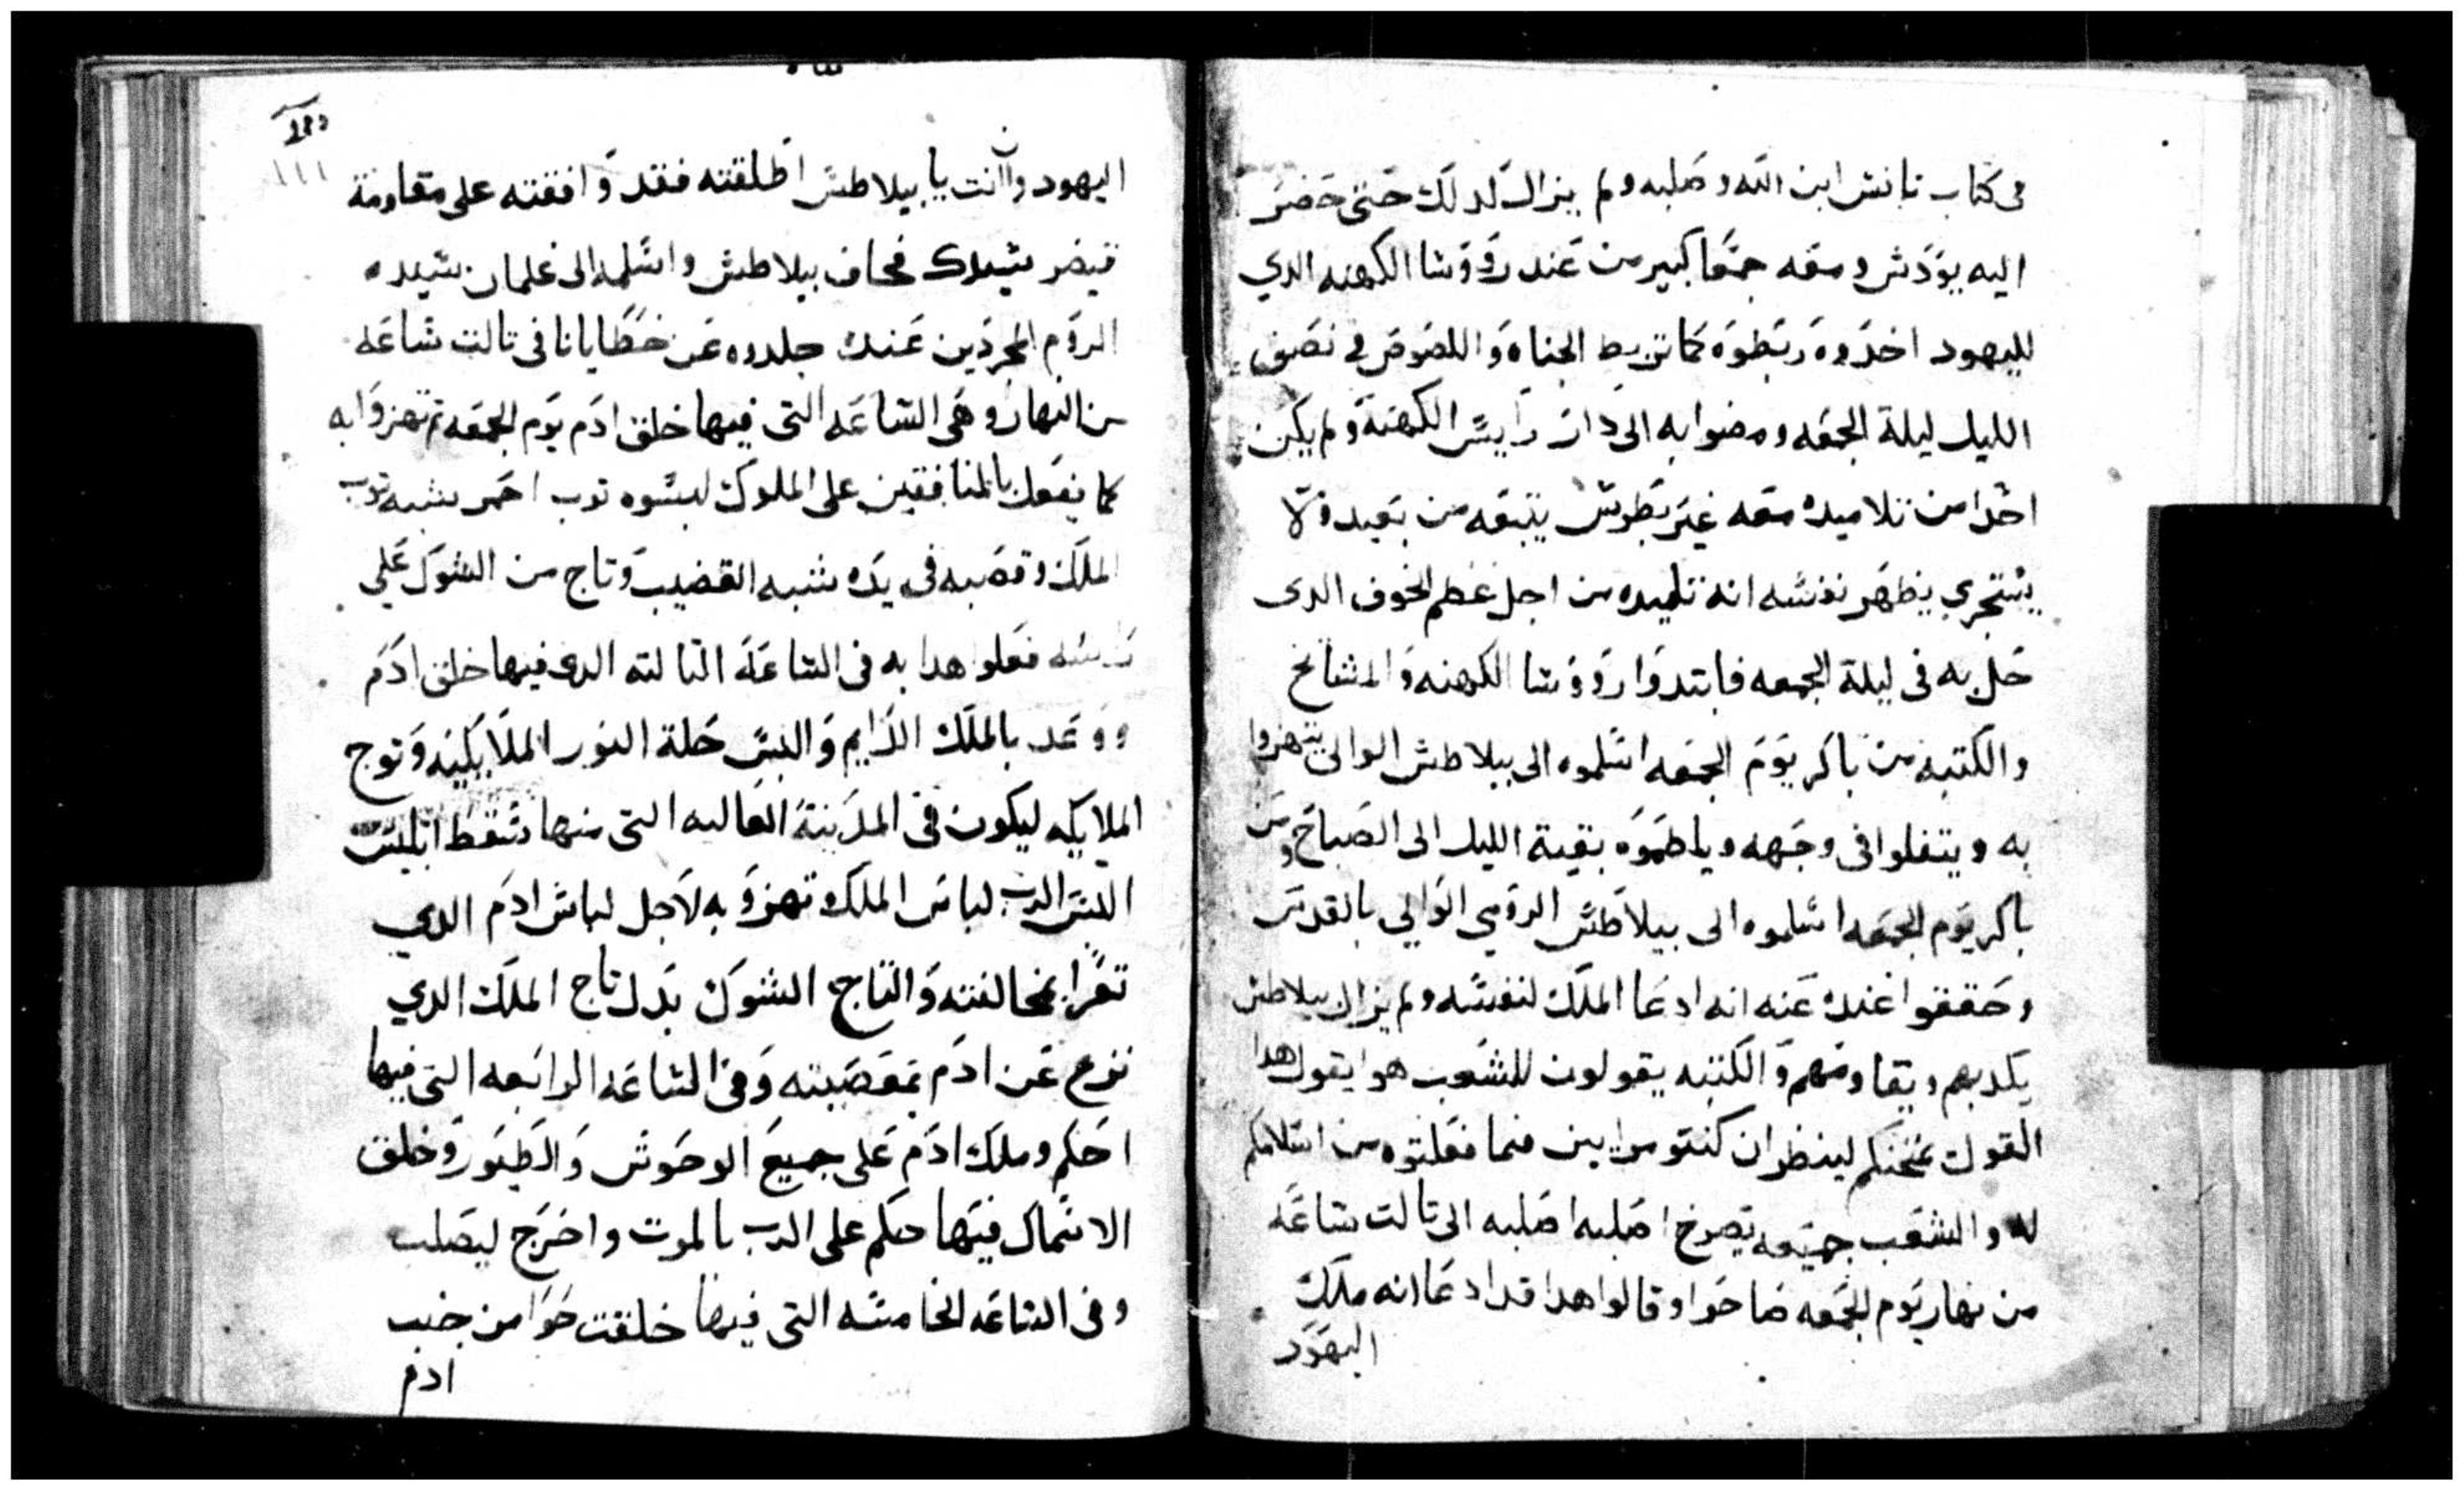 فى كتاب تانس ابن الله وصلبه ولم يزال لدلك حتى حضر
اليه يودس ومعه جمعا كبير من عند رووسا الكهنه الدي
لليهود اخدوه ربطوه كما تربط الجناه واللصوص في نصف
الليل ليلة الجمعه ومضوا به الى دار راييس الكهنة ولم يكن
احدا من تلاميده معه غير بطرس يتبعه من بعيد ولا
يستجري يظهر نفسه انه تلميده من اجل عظم الخوف الدى
حل به فى ليلة الجمعه فابتدوا روؤسا الكهنه والمشايخ
والكتبه من باكر يوم الجمعه اسلموه الى بيلاطس الوالى يتهزوا
به ويتفلوا فى وجهه ويلطموه بقية الليل الى الصباح ومن
باكر يوم الجمعه اسلموه الى بيلاطس الرومي الوالي بالقدس
وحققوا عنده عنه انه ادعا الملك لنفسه ولم يزال بيلاطس
يكدبهم ويقاومهم والكتبه يقولون للشعب هو يقول هدا
القول يمتحنكم لينظر ان كنتو مرايين فيما فعلتوه من اسلامكم
له والشعب جميعه يصرخ اصلبه اصلبه الى تالت ساعه
من نهار يوم الجمعه صاحوا وقالوا هدا قد ادعا انه ملك
اليهود
١١١
اليهود وان انت يا بيلاطس اطلقته فقد وافقته على مقاومة
قيصر سيدك فخاف بيلاطس واسلمه الى غلمان سيده
الروم المجردين عنده جلدوه عن خطايانا فى تالت ساعه
من النهار وهى الساعه التى فيها خلق ادم يوم الجمعه تم تهزوا به
كما يفعل بالمنافقين على الملوك لبسوه توب احمر يشبه توب
الملك وقصبه فى يده شبه القضيب وتاج من الشوك علي
راسه فعلوا هدا به فى الساعه التالته الدى فيها خلق ادم
ووعد بالملك الدايم والبس حلة النور الملايكيه وتوج
الملايكه ليكون فى المدينة العاليه التى منها سقط ابليس
البس الرب لباس الملك وتهزو به لاجل لباس ادم الدي
تعرا بمخالفته والتاج الشوك بدل تاج الملك الدي
نزع عن ادم بمعصيته وفى الساعه الرابعه التى فيها
احكم وملك ادم على جميع الوحوش والطيور وخلق
الاسماك فيها حكم على الرب بالموت واخرج ليصلب
وفى الساعه الخامسه التى فيها خلقت حوا من جنب
ادم